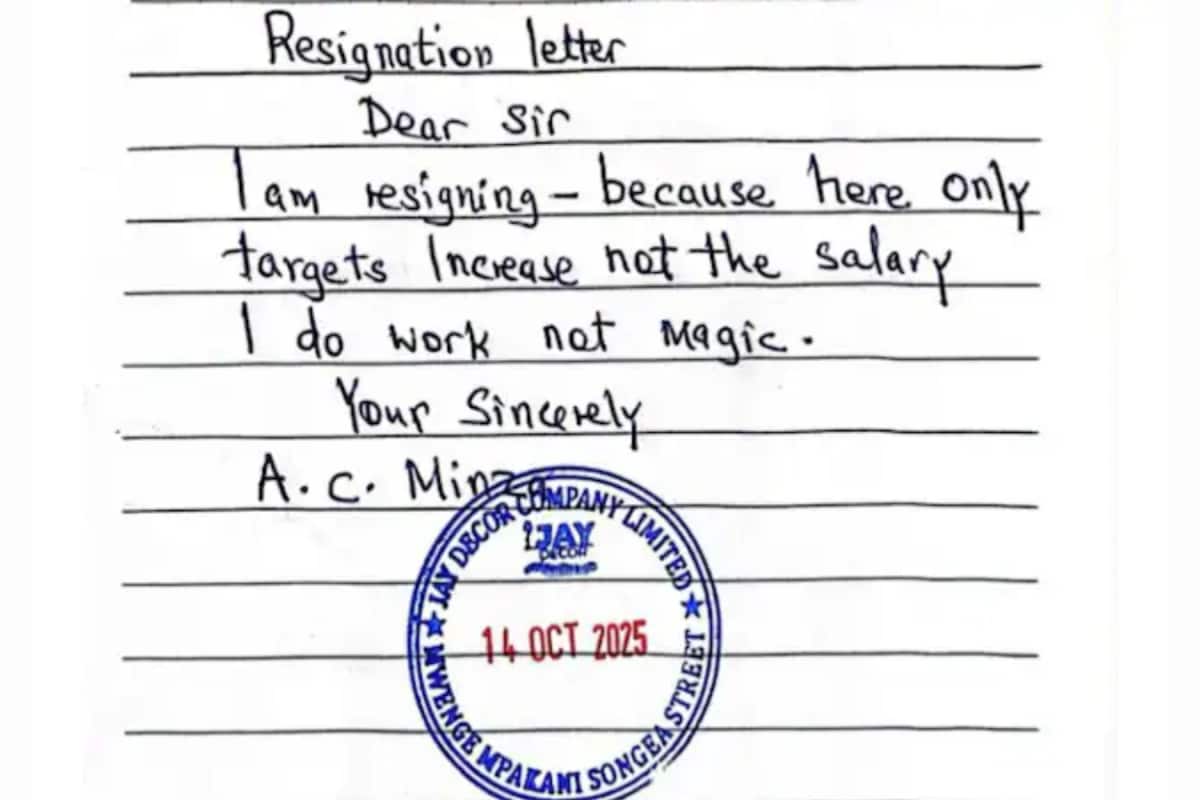 Resignation letter
Dear Sir
I am resigning - because here only
targets Increase not the salary
I do work not Magic.
Your Sincerely
A. C. Minza
JAY DECOR COMPANY LIMITED
JAY
DECOR
14 OCT 2025
MWENGE MPAKANI SONGEA STREET